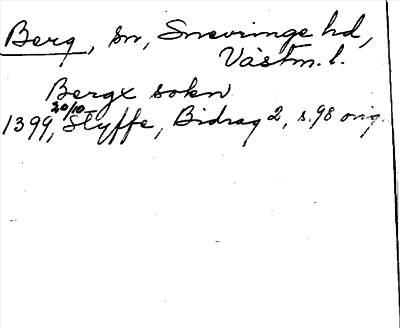 Berg, sn, Snevringe hd,
Västm. l.
Bergx sokn
20/10
1399, Styffe, Bidrag 2, s. 98 orig.